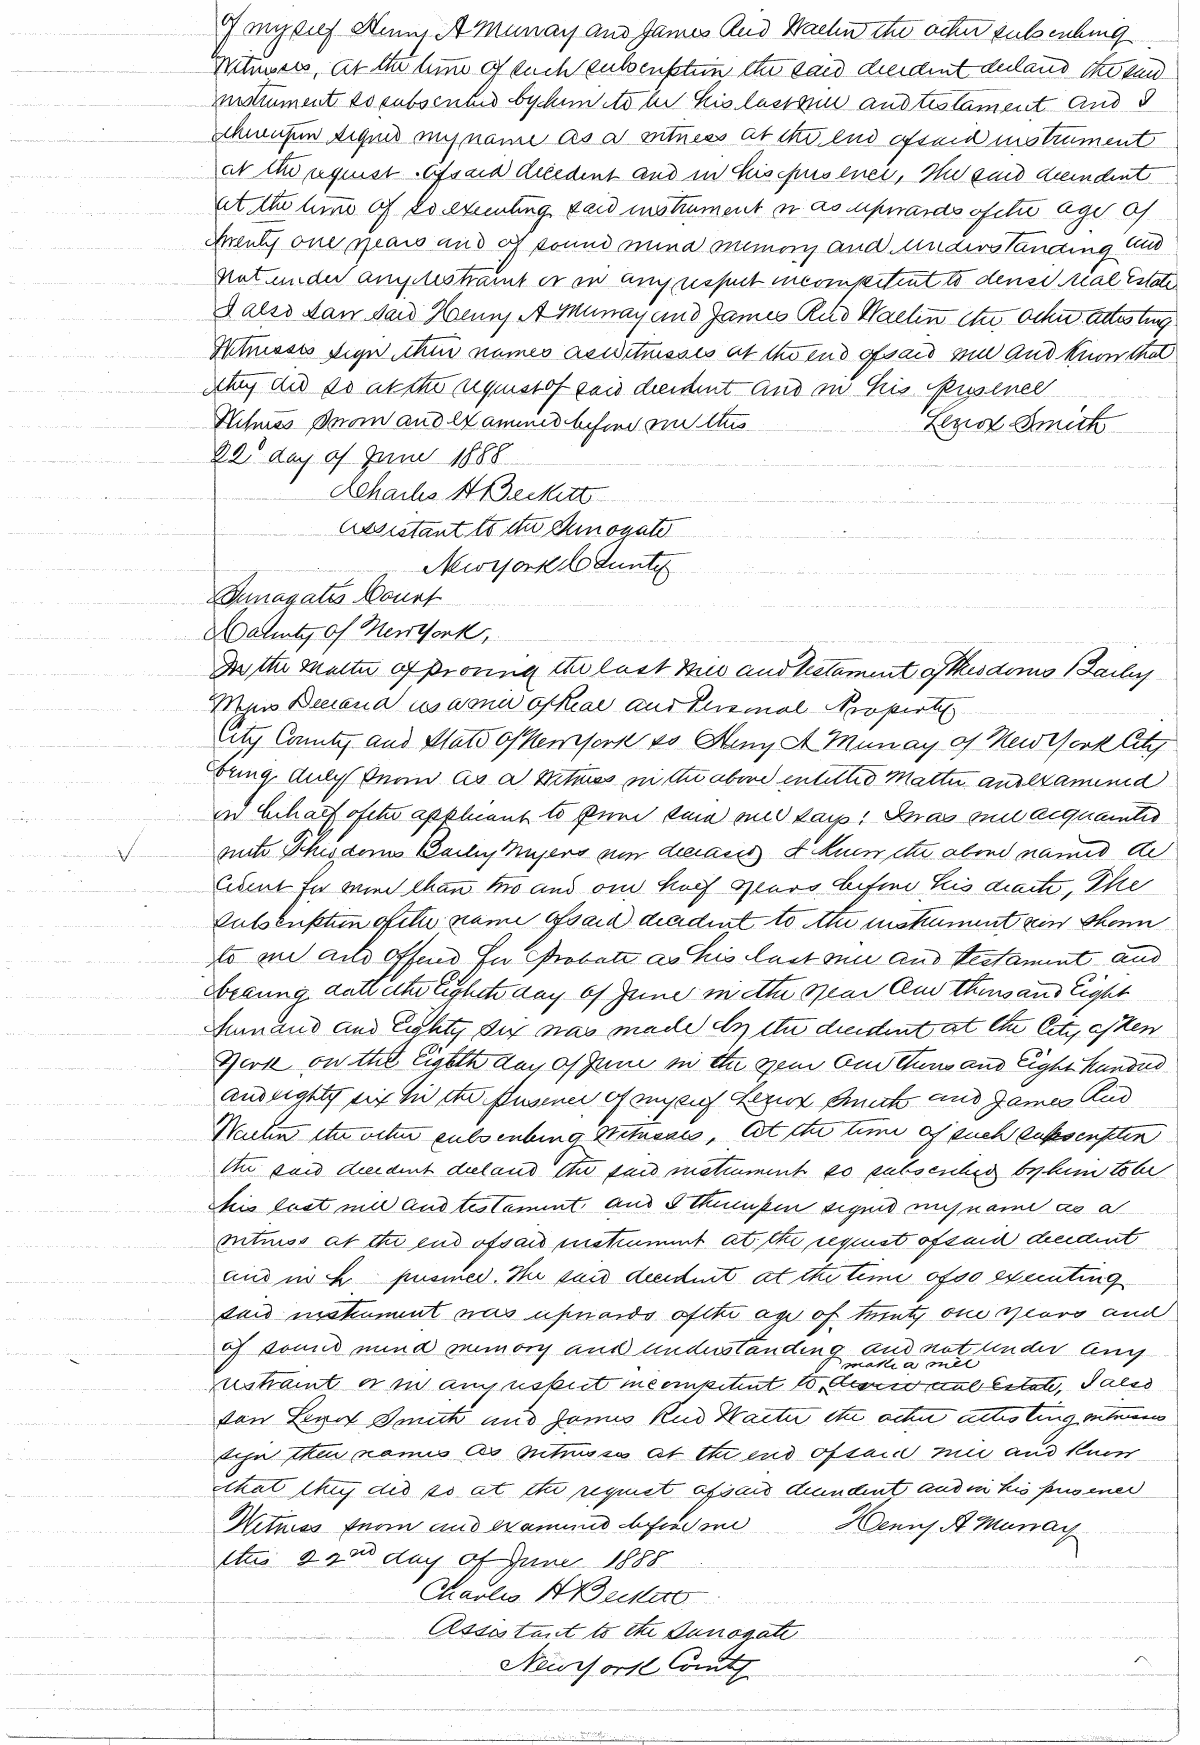 of myself Henry A Murray and James Reid Walter the other subscribing
Witnesses, at the time of such subscription the said decedent declared the said
instrument so subscribed by him to be his last will and testament and I
thereupon signed my name as a witness at the end of said instrument
at the request of said decedent and in his presence, The said decendent
at the time of so executing said instrument was upwards of the age of
twenty one years and of sound mind memory and understanding and
not under any restraint or in any respect incompetent to devise real Estate
I also saw said Henry A Murray and James Reid Walter the other attesting
Witnesses sign their names as witnesses at the end of said will and know that
they did so at the request of said decedent and in his presence
Witness sworn and examined before me this Lenox Smith
22d day of June 1888
Charles H Beckett
Assistant to the Surrogate
New York County
Surrogates Court
County of New York,
In the Matter of proving the last will and testament of Theodorus Bailey
Myers Deceased as a will of Real and Personal Property
City County and State of New York ss Henry A Murray of New York City
being duly sworn as a witness in the above entitled Matter and examined
on behalf of the applicant to prove said will says: I was well acquainted
with Theodorus Bailey Myers now deceased I knew the above named de
cedent for more than two and one half years before his death, The
subscription of the name of said decedent to the instrument now shown
to me and offered for probate as his last will and testament and
bearing date the Eighth day of June in the year One thousand Eight
hundred and Eighty six was made by the decedent at the City of New
York on the Eighth day of June in the year One thousand Eight hundred
and eighty six in the presence of myself Lenox Smith and James Reid
Walter the other subscribing Witnesses, At the time of such subscription
the said decedent declared the said instrument so subscribed by him to be
his last will and testament and I thereupon signed my name as a
witness at the end of said instrument at the request of said decedent
and in h presence. The said decedent at the time of so executing
said instrument was upwards of the age of twenty one years and
of sound mind memory and understanding and not under any
make a will
restraint or in any respect incompetent to devise real Estate, I also
saw Lenox Smith and James Reid Walter the other attesting witnesses
sign their names as witnesses at the end of said will and know
that they did so at the request of said decendent and in his presence
Witness sworn and examined before me Henry A Murray
this 22nd day of June 1888
Charles H Beckett
Assistant to the Surrogate
New York County